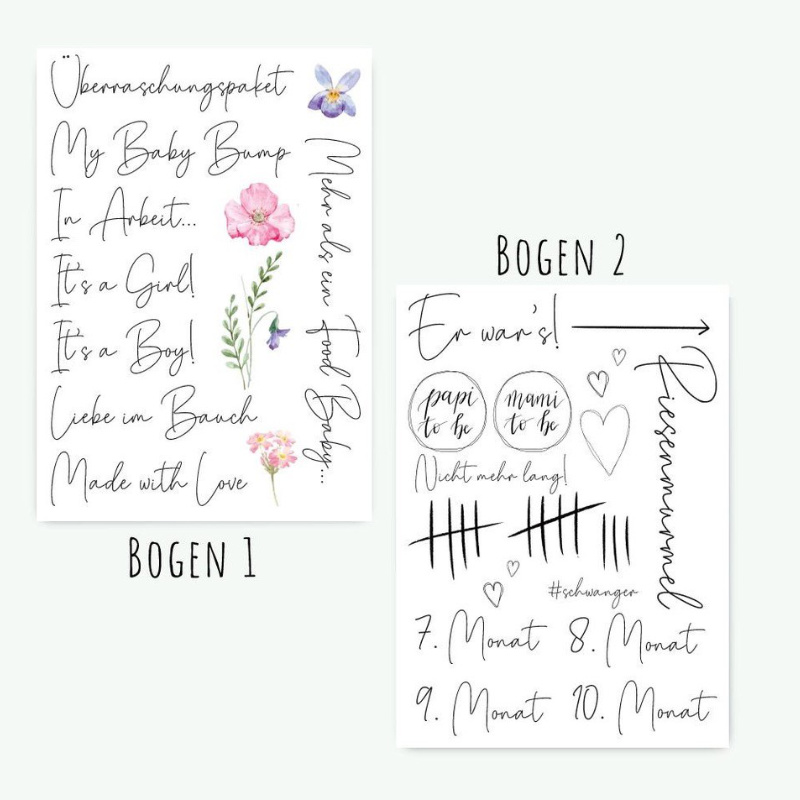 Überraschungspaket
My Baby Bump
In Arbeit...
It's a Girl!
It's a Boy!
Liebe im Bauch
Made with Love
Mehr als ein Food Baby...
BOGEN 1
BOGEN 2
Er war's!
papi
to be
mami
to be
Nicht mehr lang!
Riesenmurmel
#schwanger
7. Monat
8. Monat
9. Monat
10. Monat